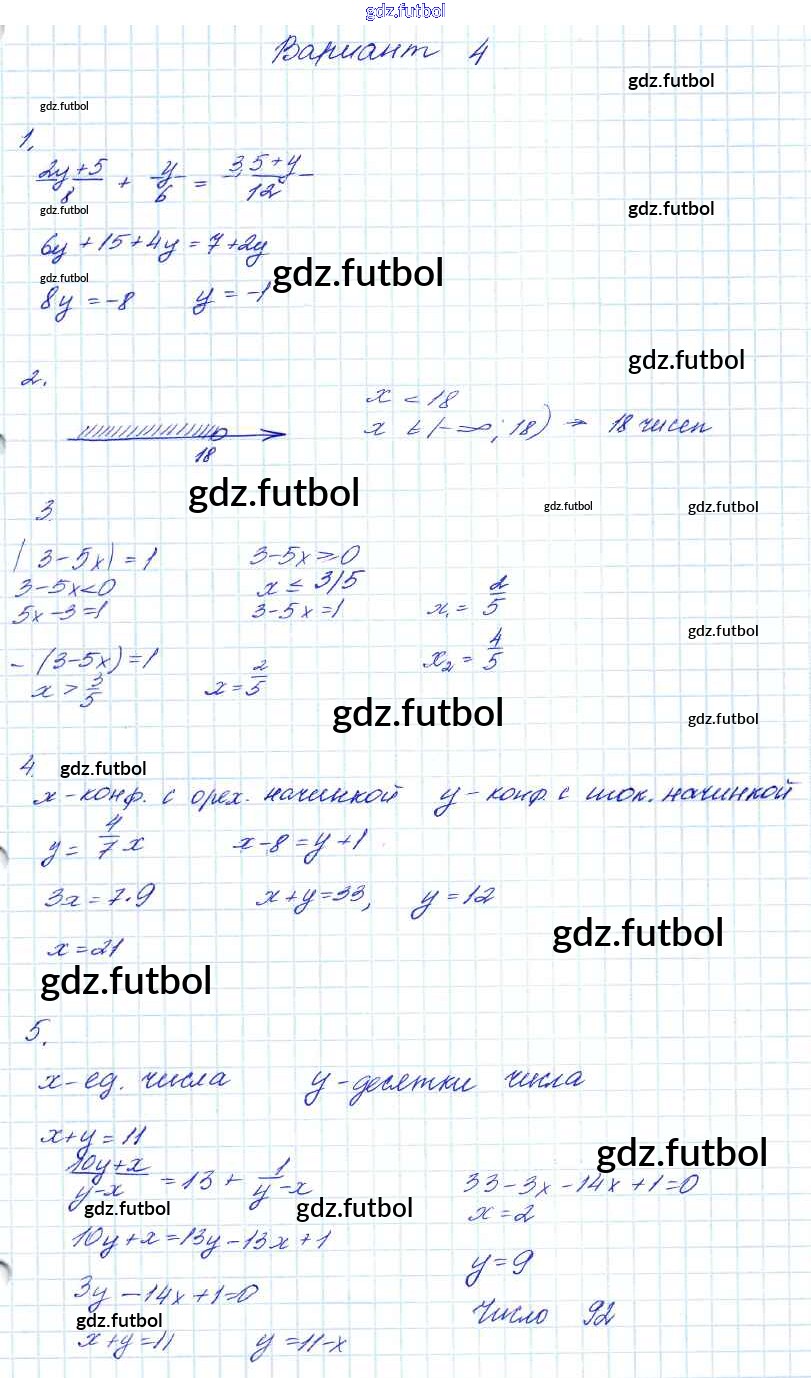 gdz.futbol
Вариант 4
gdz.futbol
gdz.futbol
1.
(2y+5)/8 + y/6 = (3,5+y)/12
gdz.futbol gdz.futbol
6y + 15 + 4y = 7 + 2y
gdz.futbol gdz.futbol
8y = -8 y = -1
gdz.futbol
2.
x < 18
x ∈ (-∞; 18) ⇒ 18 чисел
18
gdz.futbol
3. gdz.futbol gdz.futbol
|3-5x| = 1 3-5x ≥ 0
3-5x<0 x ≤ 3/5
5x-3=1 3-5x=1 x₁ = 2/5
gdz.futbol
-(3-5x)=1 x₂ = 4/5
x > 3/5 x = 2/5
gdz.futbol gdz.futbol
4. gdz.futbol
x - конф. с орех. начинкой y - конф. с шок. начинкой
y = 4/7 x x-8 = y+1
3x = 7·9 x+y=33, y=12
gdz.futbol
x = 21
gdz.futbol
5.
x - ед. числа y - десятки числа
x+y = 11
gdz.futbol
(10y+x)/(y-x) = 13 + 1/(y-x) 33-3x-14x+1=0
gdz.futbol gdz.futbol x=2
10y+x=13y-13x+1
y=9
3y-14x+1=0
gdz.futbol Число 92
x+y=11 y=11-x